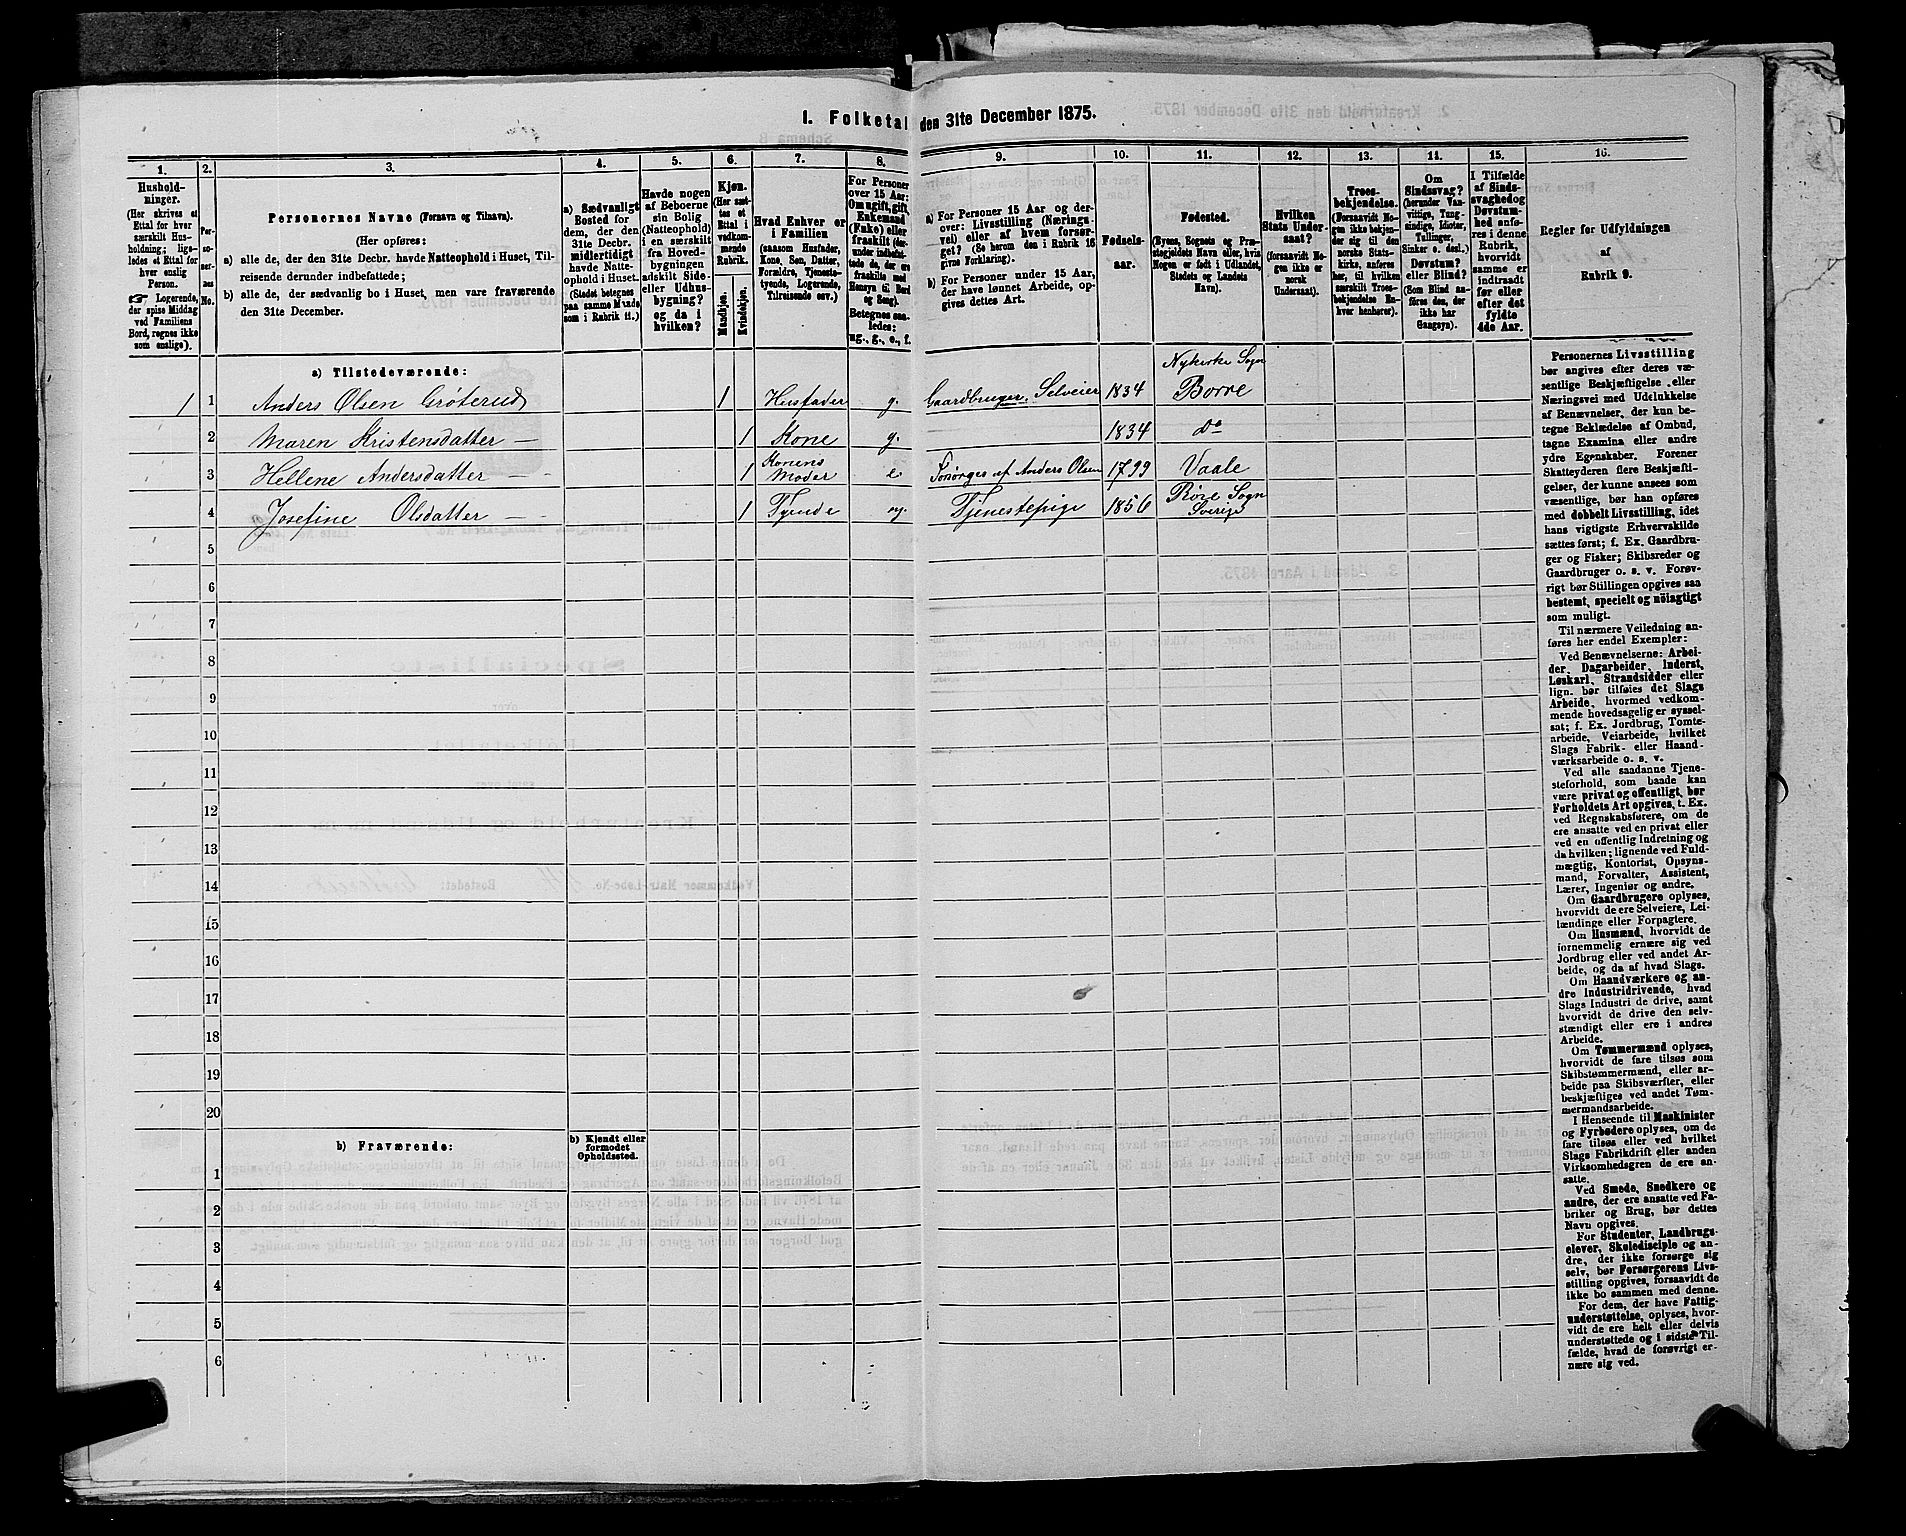 I. Folketal den 31te December 1875.
1. 2. 3. 4. 5. 6. 7. 8. 9. 10. 11. 12. 13. 14. 15. 16.
Hushold-
ninger.
(Her skrives et
Ettal for hver
særskilt Hus-
holdning; lige-
ledes et Ettal for
hver enslig
Person.
☞ Logerende,
der spise Middag
ved Familiens
Bord, regnes ikke
som enslige).
Per-
so-
ner-
nes
No.
Personernes Navne (Fornavn og Tilnavn).
(Her opføres:
a) alle de, der den 31te Decbr. havde Natteophold i Huset, Til-
reisende derunder indbefattede;
b) alle de, der sædvanlig bo i Huset, men vare fraværende
den 31te December.
a) Sædvanligt
Bosted for
dem, der den
31te Decbr.
midlertidigt
havde Natte-
ophold i Huset.
(Stedet betegnes
paa samme Maade
som i Rubrik 11.)
Havde nogen
af Beboerne
sin Bolig
(Natteophold)
i en særskilt
fra Hoved-
bygningen
adskilt Side-
eller Udhus-
bygning?
og da i
hvilken?
Kjøn.
(Her sæt-
tes et
Ettal i
vedkom-
mende
Rubrik.
Mandkjøn.
Kvindekjøn.
Hvad Enhver er
i Familien
(saasom Husfader,
Kone, Søn, Datter,
Forældre, Tjeneste-
tyende, Logerende,
Tilreisende osv.)
For Personer
over 15 Aar:
Om ugift, gift,
Enkemand
(Enke) eller
fraskilt (der-
under indbefat-
tede de, der ere
fraskilte med
Hensyn til Bord
og Seng).
Betegnes saa-
ledes:
ug., g., e., f.
a) For Personer 15 Aar og der-
over: Livsstilling (Nærings-
vei) eller af hvem forsør-
get? (Se herom den i Rubrik 16
givne Forklaring).
b) For Personer under 15 Aar,
der have lønnet Arbeide, op-
gives dettes Art.
Fødsels-
aar.
Fødested.
(Byens, Sognets og Præ-
stegjeldets Navn eller, hvis
Nogen er født i Udlandet,
Stedets og Landets
Navn).
Hvilken
Stats Under-
saat?
(forsaavidt No-
gen ikke er
norsk
Undersaat).
Troes-
bekjendelse.
(Forsaavidt No-
gen ikke bekjen-
der sig til den
norske Stats-
kirke, anføres
her, til hvilken
særskilt Troes-
bekjendelse En-
hver henhører).
Om
Sindssvag?
(herunder Van-
vittige, Tung-
sindige, Idioter,
Tullinger,
Sinker o. desl.)
Døvstum?
eller Blind?
(Som Blind an-
føres den, der
ikke har
Gangsyn).
I Tilfælde
af Sinds-
svaghed og
Døvstum-
hed anfø-
res i denne
Rubrik,
hvorvidt
samme er
indtraadt
før eller
efter det
fyldte
4de Aar.
Regler for Udfyldningen
af
Rubrik 9.
a) Tilstedeværende:
Nykirke Sogn
1 1 Anders Olsen Grøterud 1 Husfader g. Gaardbruger, Selveier 1834 Borre
2 Maren Kristensdatter — 1 Kone g. 1834 do
3 Hellene Andersdatter — 1 Konens Moder e Forsørges af Anders Olsen 1799 Vaale
4 Josefine Olsdatter — 1 Tyende ug. Tjenestepige 1856 Sogn Sverige
5
6
7
8
9
10
11
12
13
14
15
16
17
18
19
20
b) Fraværende:
b) Kjendt eller
formodet
Opholdssted.
1
2
3
4
5
6
Personernes Livsstilling
bør angives efter deres væ-
sentlige Beskjæftigelse eller
Næringsvei med Udelukkelse
af Benævnelser, der kun be-
tegne Beklædelse af Ombud,
tagne Examina eller andre
ydre Egenskaber. Forener
Skatteyderen flere Beskjæfti-
gelser, der kunne ansees som
væsentlige, bør han opføres
med dobbelt Livsstilling, idet
hans vigtigste Erhvervskilde
sættes først; f. Ex. Gaardbru-
ger og Fisker; Skibsreder og
Gaardbruger o. s. v. Forøv-
rigt bør Stillingen opgives saa
bestemt, specielt og nöiagtigt
som muligt.
Til nærmere Veiledning an-
føres her endel Exempler:
Ved Benævnelserne: Arbei-
der, Dagarbeider, Inderst,
Løskarl, Strandsidder eller
lign. bør tilføies det Slags
Arbeide, hvormed vedkom-
mende hovedsagelig er syssel-
sat; f. Ex. Jordbrug, Tomte-
arbeide, Veiarbeide, hvilket
Slags Fabrik- eller Haand-
værksarbeide o. s. v.
Ved alle saadanne Tjene-
steforhold, som baade kan
være privat og offentligt, bør
Forholdets Art opgives, t. Ex.
ved Regnskabsførere, om de
ere ansatte ved en privat eller
ved en offentlig Indretning og
da hvilken; lignende ved Fuld-
mægtig, Kontorist, Opsyns-
mand, Forvalter, Assistent,
Lærer, Ingeniør og andre.
Om Gaardbrugere oplyses,
hvorvidt de ere Selveiere, Lei-
lændinge eller Forpagtere.
Om Husmænd, hvorvidt de
fornemmelig ernære sig ved
Jordbrug eller ved andet Ar-
beide, og da af hvad Slags.
Om Haandværkere og an-
dre Industridrivende, hvad
Slags Industri de drive, samt
hvorvidt de drive den selv-
stændigt eller ere i andres
Arbeide.
Om Tømmermænd oplyses,
hvorvidt de fare tilsøs som
Skibstømmermænd, eller ar-
beide paa Skibsværfter, eller
beskjæftiges ved andet Tøm-
mermandsarbeide.
I Henseende til Maskinister
og Fyrbødere oplyses, om de
fare tilsøs eller ved hvilket
Slags Fabrikdrift eller anden
Virksomhedsgren de ere an-
satte.
Ved Smede, Snedkere og
andre, der ere ansatte ved Fa-
briker og Brug, bør dettes
Navn opgives.
For Studenter, Landbrugs-
elever, Skoledisciple og an-
dre, der ikke forsørge sig
selv, bør Forsørgerens Livs-
stilling opgives, forsaavidt de
ikke bo sammen med denne.
For dem, der have Fattig-
understøttelse, oplyses, hvor-
vidt de ere helt eller delvis
understøttede og i sidste Til-
fælde, hvad de forøvrigt er-
nære sig ved.